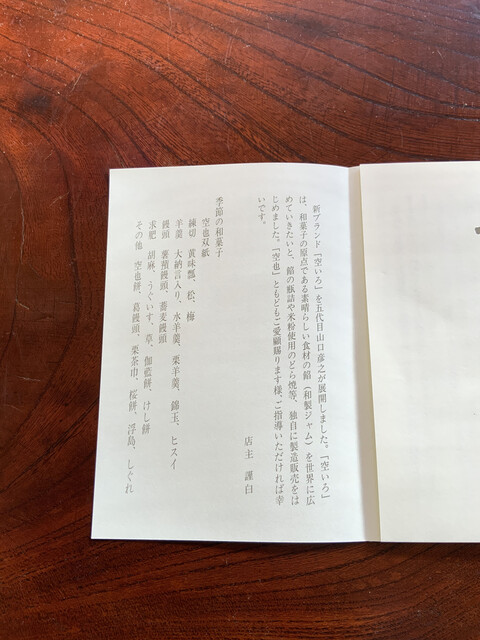 新ブランド「空いろ」を五代目山口彦之が展開しました。「空いろ」
は、和菓子の原点である素晴らしい食材の餡（和製ジャム）を世界に広
めていきたいと、餡の瓶詰や米粉使用のどら焼等、独自に製造販売をは
じめました。「空也」ともどもご愛顧賜ります様、ご指導いただければ幸
いです。
店主 謹白
季節の和菓子
空也双紙
練切 黄味瓢、松、梅
羊羹 大納言入り、水羊羹、栗羊羹、錦玉、ヒスイ
饅頭 薯蕷饅頭、蕎麦饅頭
求肥 胡麻、うぐいす、草、伽藍餅、けし餅
その他 空也餅、葛饅頭、栗茶巾、桜餅、浮島、しぐれ